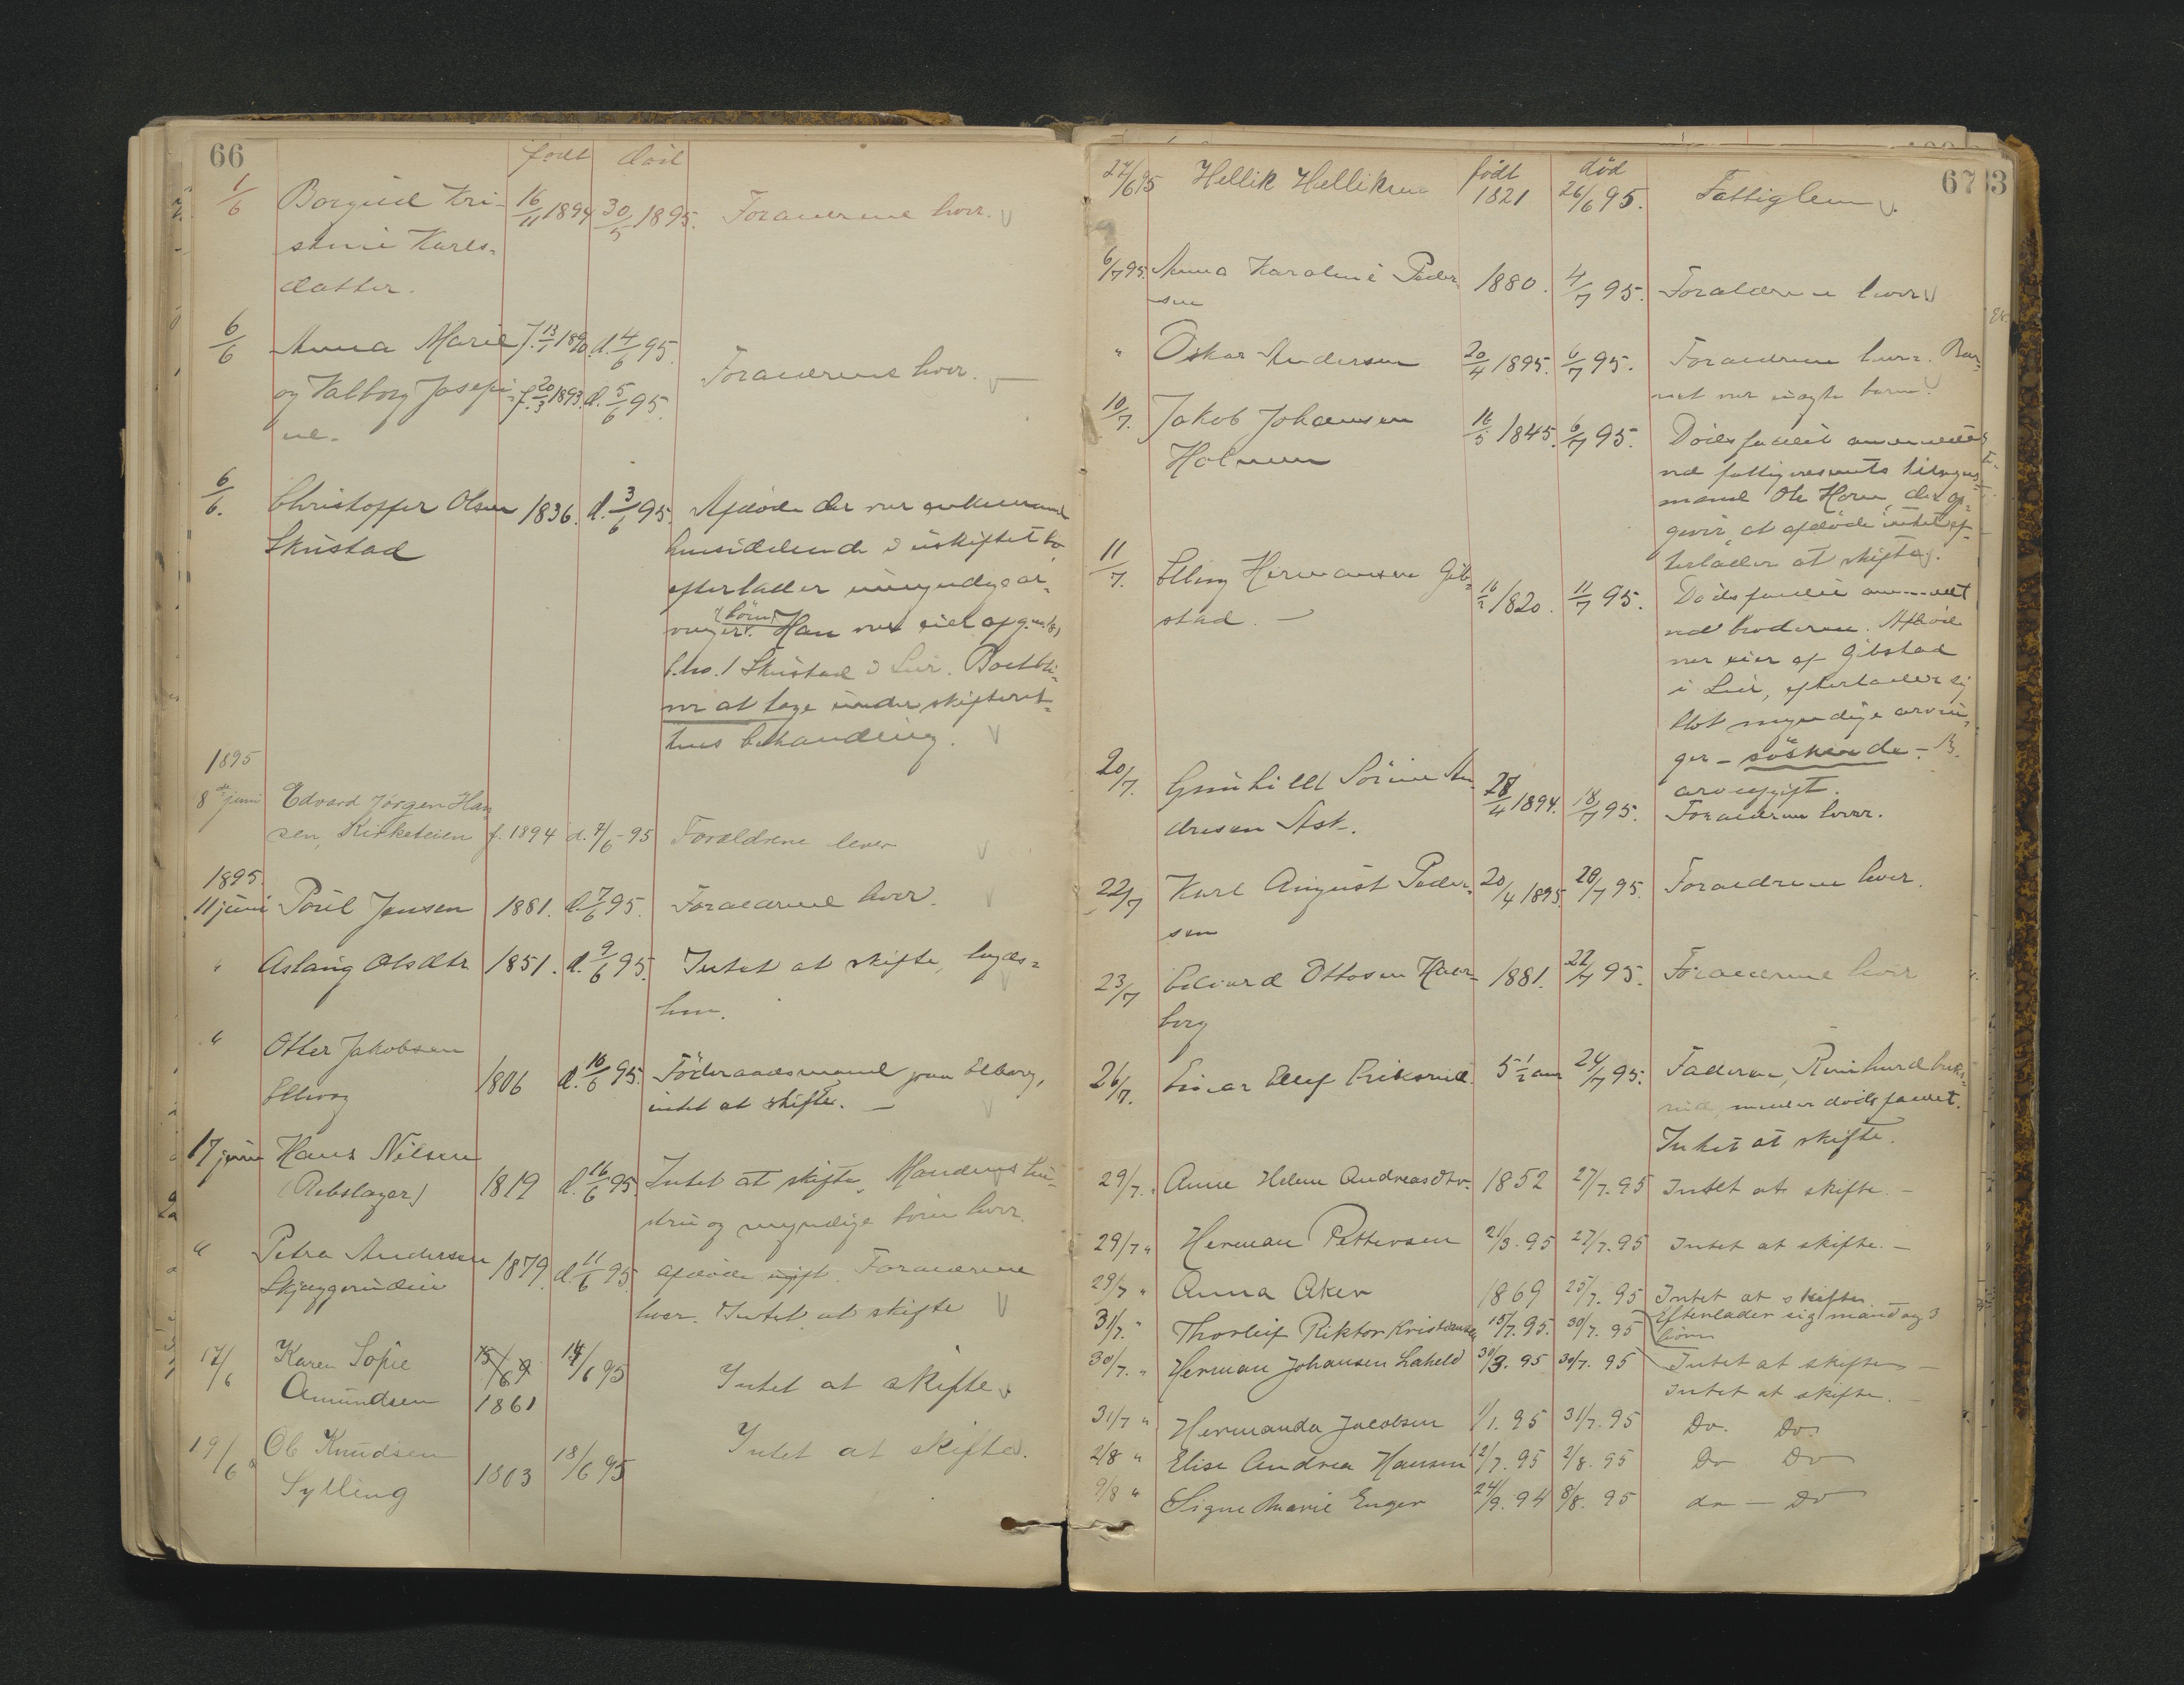 66
født død
1/6 Borgild Kri- 16/11 1894 30/5 1895. Forældrene lever. V
stine Karls-
datter.
6/6 Anna Marie f. 13/1 1890. d. 4/6 95.
og Valborg Josefi- f. 20/3 1893. d. 5/6 95. Forældrene lever. V
ne.
6/6. Christoffer Olsen 1836. d. 3/6 95. Afdøde der var enkemand
Skustad hensiddende i uskiftet bo,
efterlader umyndige ar-
(börn)
vinger. Han var eier af g.no. 181
b.no. 1 Skustad i Lier. Boet bli-
ver at tage under skifteret-
tens behandling. V
1895
8de juni Edvard Jørgen Han
sen, Kirketeien f. 1894 d. 7/6-95 Forældrene lever V
1895.
11 juni Poul Jensen 1881. d. 7/6 95. Forældrene lever. V
" Aslaug Olsdtr. 1851. d. 9/6 95. Intet at skifte, lægds-
lem. V
" Otter Jakobsen
Elborg 1806 d. 10/6 95. Föderaadsmand paa Elborg,
intet at skifte. — V
17 juni Hans Nilsen
(Rebslager) 1819 d. 16/6 95. Intet at skifte. Mandens hu-
stru og myndige börn lever.
" Petra Andersen
Skjæggerudeie 1879. d. 11/6 95. Afdøde ugift. Forældrene
lever. Intet at skifte V
17/6 Karen Sofie 15/69 14/6 95
Amundsen 1861 Intet at skifte. V
19/6 Ole Knudsen 18/6 95 Intet at skifte.
Sylling 1803
67
83
født død
27/6 95 Hellik Helliksen 1821 26/6 95. Fattiglem V.
6/7 95. Anna Karoline Peder- 1880. 4/7 95. Forældrene lever V
sen
" Oskar Andersen 20/4 1895. 6/7 95. Forældrene lever. Bar-
net var uægte barn. V
10/7. Jakob Johansen 16/5 1845. 6/7 95. Dödsfaldet anmeldt
Holmen ved fattigvæsenets tilsyns-
mand Ole Horn, der op-
giver, at afdøde intet ef-
terlader at skifte.
11/7. Elling Hermansen Gib- 16/2 1820. 11/7 95. Dödsfaldet anmeldt
stad. — ved broderen. Afdøde
var eier af Gibstad
i Lier, efterlader sig
blot myndige arvin-
ger - söskende -
arveafgift.
20/7. Gunhild Sörine An- 28/4 1894. 18/7 95. Forældrene lever.
dresen Ask.
22/7 Karl August Peder- 20/4 1895. 20/7 95. Forældrene lever.
sen
23/7 Edvard Ottosen Haar- 1881. 22/7 95. Forældrene lever
borg
26/7. Einar Ellef Eriksrud 5½ aar 24/7 95. Faderen, Reinhard Eriks-
rud, melder dödsfaldet.
Intet at skifte.
29/7. " Anne Helene Andreasdtr. 1852 27/7. 95 Intet at skifte. —
29/7 " Herman Pettersen 21/3. 95 27/7. 95 Intet at skifte. —
29/7 " Anna Aker 1869 25/7. 95 Intet at skifte
Efterlader sig mand og 3
börn
31/7. " Thorleif Riktor Kristiansen 15/7. 95. 30/7. 95 Intet at skifte —
30/7. " Herman Johansen Laheld 30/3. 95 30/7. 95 Intet at skifte. —
31/7 " Hermanda Jacobsen 1/1. 95 31/7. 95 Do. Do.
2/8 " Elise Andrea Hansen 12/7. 95 2/8. 95 Do Do
9/8 " Signe Marie Enger 24/9. 94 8/8. 95 do — Do